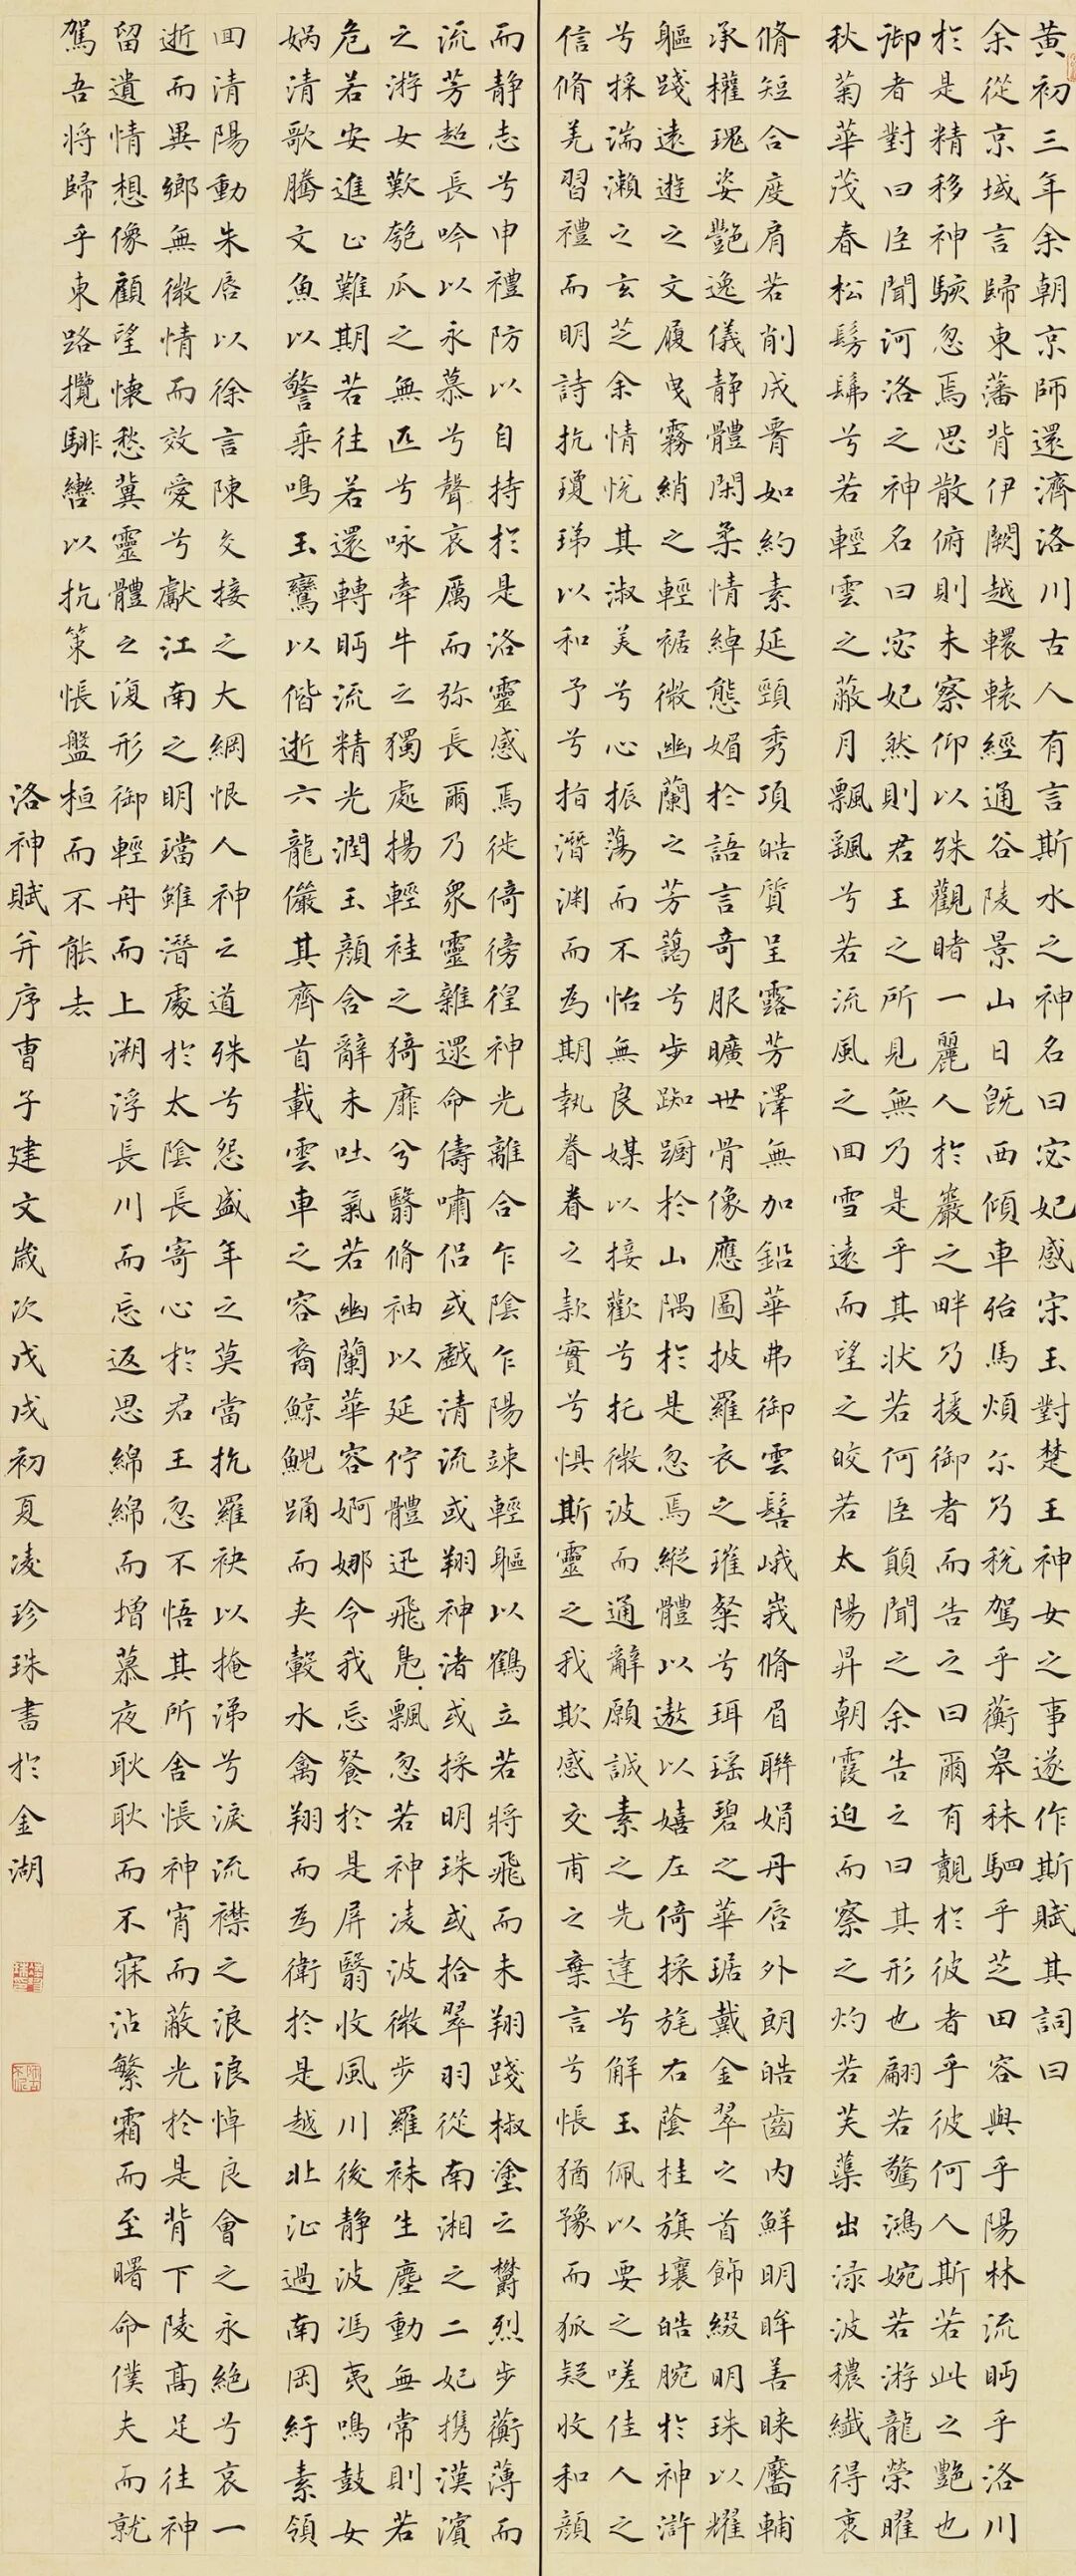 黄初三年余朝京師還濟洛川古人有言斯水之神名曰宓妃感宋玉對楚王神女之事遂作斯賦其詞曰
余從京域言歸東藩背伊闕越轘轅經通谷陵景山日既西傾車殆馬煩尓乃稅駕乎蘅皋秣駟乎芝田容與乎陽林流眄乎洛川
於是精移神駭忽焉思散俯則未察仰以殊觀睹一麗人於巖之畔乃援御者而告之曰爾有覿於彼者乎彼何人斯若此之艷也
御者對曰臣聞河洛之神名曰宓妃然則君王之所見無乃是乎其状若何臣願聞之余告之曰其形也翩若驚鴻婉若游龍榮曜
秋菊華茂春松髣髴兮若輕雲之蔽月飄颻兮若流風之回雪遠而望之皎若太陽昇朝霞迫而察之灼若芙蕖出渌波穠纖得衷
脩短合度肩若削成腰如約素延頸秀項皓質呈露芳澤無加鉛華弗御雲髻峨峩脩眉聯娟丹唇外朗皓齒内鮮明眸善睞靨輔
承權瑰姿艷逸儀静體閑柔情綽態媚於語言奇服曠世骨像應圖披羅衣之璀粲兮珥瑶碧之華琚戴金翠之首飾綴明珠以耀
軀踐遠遊之文履曳霧綃之輕裾微幽蘭之芳藹兮步踟躕於山隅於是忽焉縱體以遨以嬉左倚採旄右蔭桂旗壤皓腕於神滸
兮採湍瀨之玄芝余情悅其淑美兮心振蕩而不怡無良媒以接歡兮托微波而通辭願誠素之先達兮解玉佩以要之嗟佳人之
信脩羌習禮而明詩抗瓊珶以和予兮指潛淵而為期執眷眷之款實兮懼斯靈之我欺感交甫之棄言兮悵猶豫而狐疑收和顏
而静志兮申禮防以自持於是洛靈感焉徙倚徬徨神光離合乍陰乍陽竦輕軀以鶴立若將飛而未翔踐椒塗之欝烈步蘅薄而
流芳超長吟以永慕兮聲哀厲而弥長爾乃衆靈雜遝命儔嘯侣或戲清流或翔神渚或採明珠或拾翠羽從南湘之二妃携漢濱
之游女歎匏瓜之無匹兮咏牽牛之獨處揚輕袿之猗靡兮翳脩袖以延佇體迅飛鳧飄忽若神凌波微步羅袜生塵動無常則若
危若安進止難期若往若還轉眄流精光潤玉顏含辭未吐氣若幽蘭華容婀娜令我忘餐於是屏翳收風川後静波馮夷鳴鼓女
娲清歌騰文魚以警乘鳴玉鸞以偕逝六龍儼其齊首載雲車之容裔鯨鯢踊而夾轂水禽翔而為衛於是越北沚過南岡紆素領
回清陽動朱唇以徐言陳交接之大綱恨人神之道殊兮怨盛年之莫當抗羅袂以掩涕兮淚流襟之浪浪悼良會之永絕兮哀一
逝而異鄉無微情而效愛兮獻江南之明璫雖潛處於太陰長寄心於君王忽不悟其所舍悵神宵而蔽光於是背下陵高足往神
留遺情想像顧望懷愁冀靈體之復形御輕舟而上溯浮長川而忘返思綿綿而增慕夜耿耿而不寐沾繁霜而至曙命僕夫而就
駕吾將歸乎東路攬騑轡以抗策悵盤桓而不能去
洛神賦并序曹子建文歲次戊戌初夏凌珍珠書於金湖